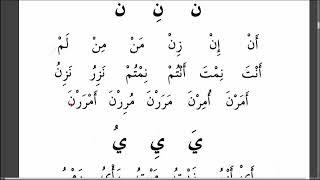 نَ نِ نُ
أَنْ إِنْ زِنْ مَنْ مِنْ لَمْ
أَنْتَ نِمْتَ أَنْتُمْ نِمْتُمْ نَزِرُ نَزِنُ
أَمَرْنَ أُمِرْنَ مَرَرْنَ مُرِرْنَ أَمْرَرْنَ
يَ يِ يُ